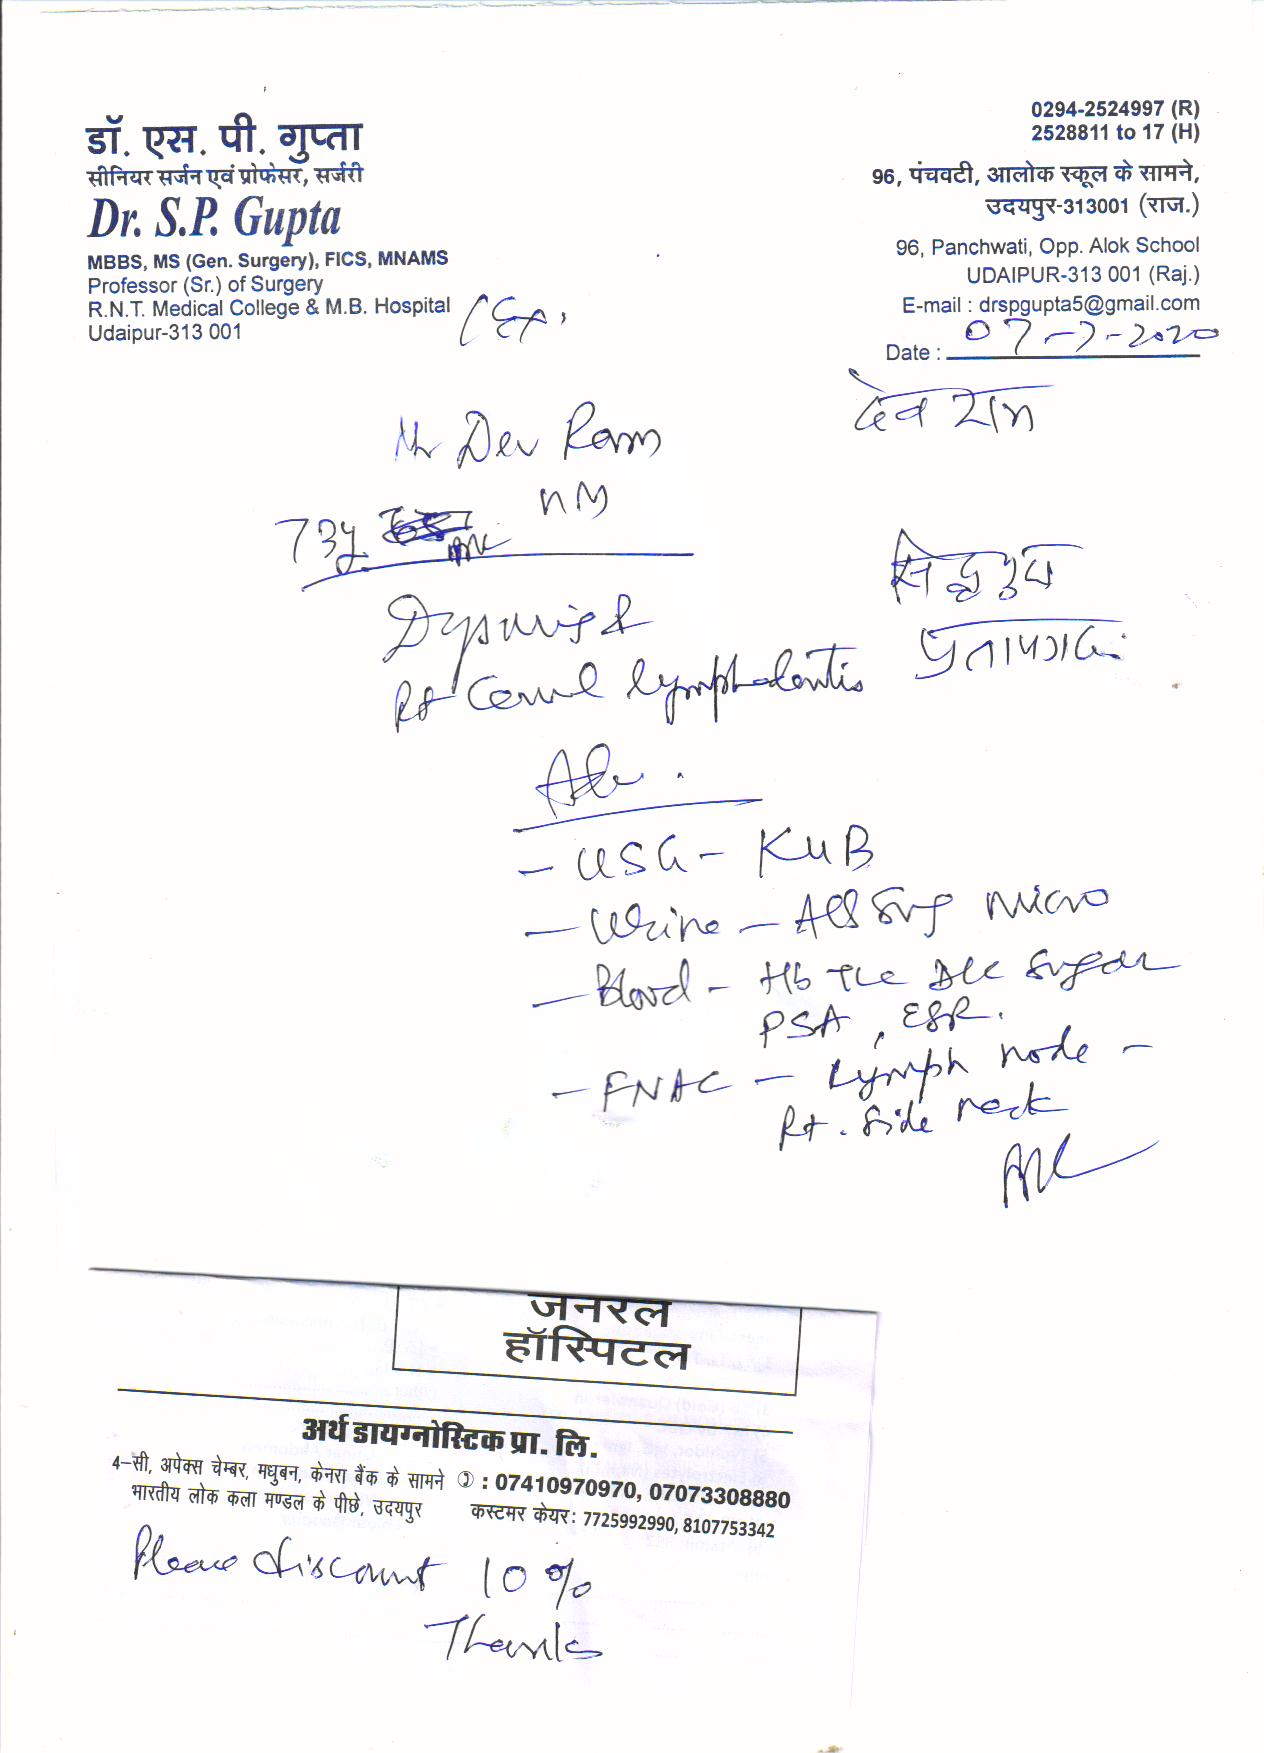 डॉ. एस. पी. गुप्ता
सीनियर सर्जन एवं प्रोफेसर, सर्जरी
Dr. S.P. Gupta
MBBS, MS (Gen. Surgery), FICS, MNAMS
Professor (Sr.) of Surgery
R.N.T. Medical College & M.B. Hospital
Udaipur-313 001
0294-2524997 (R)
2528811 to 17 (H)
96, पंचवटी, आलोक स्कूल के सामने,
उदयपुर-313001 (राज.)
96, Panchwati, Opp. Alok School
UDAIPUR-313 001 (Raj.)
E-mail : drspgupta5@gmail.com
Date : 07-7-2020
देव राम
Mr Dev Ram
73y
Rt Cervical lymphadenitis
Adv.
- USG - KUB
- Urine - Alb Sug micro
- Blood - Hb TLC DLC Sugar
PSA, ESR.
- FNAC - Lymph node -
Rt. Side neck
जनरल
हॉस्पिटल
अर्थ डायग्नोस्टिक प्रा. लि.
4-सी, अपेक्स चेम्बर, मधुबन, केनरा बैंक के सामने : 07410970970, 07073308880
भारतीय लोक कला मण्डल के पीछे, उदयपुर कस्टमर केयर: 7725992990, 8107753342
Please discount 10%
Thanks